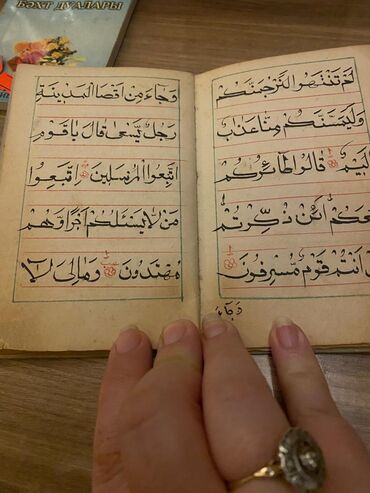 БӘХТ ДУАЛАРЫ
لَمْ تَنْتَهُوا لَنَرْجُمَنَّكُمْ
وَلَيَمَسَّنَّكُمْ مِنَّا عَذَابٌ
اَلِيمٌ قَالُوا طَائِرُكُمْ
مَعَكُمْ اَئِنْ ذُكِّرْتُمْ
بَلْ اَنْتُمْ قَوْمٌ مُسْرِفُونَ
وَجَاءَ
وَجَاءَ مِنْ اَقْصَا الْمَدِينَةِ
رَجُلٌ يَسْعٰى قَالَ يَاقَوْمِ
اتَّبِعُوا الْمُرْسَلِينَ اِتَّبِعُوا
مَنْ لَا يَسْئَلُكُمْ اَجْرًا وَهُمْ
مُهْتَدُونَ وَمَا لِىَ لَا